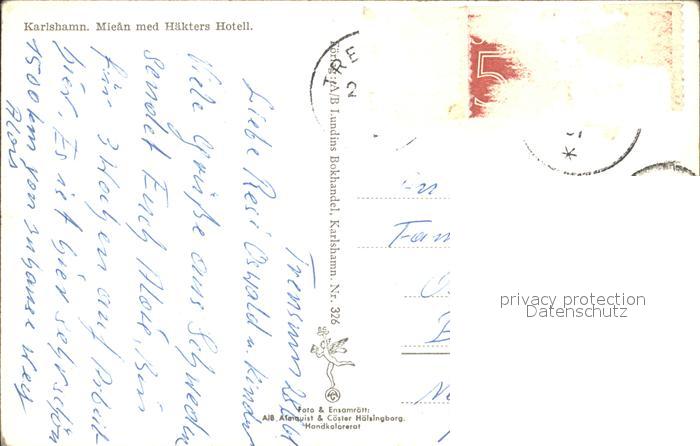 Karlshamn. Mieån med Häkters Hotell.
Trensum
Liebe Resi Oswald u. Kinder
Viele Grüße aus Schweden
sendet Euch Alois. Bin
für 3 Wochen auf Arbeit
hier. Es ist hier sehr schön
1500 km von zuhause weg
Alois
Förlag: A/B Lundins Bokhandel, Karlshamn. Nr. 326
TRE
2
5
An
Fam
privacy protection
Datenschutz
Foto & Ensamrätt:
A/B Almquist & Cöster Hälsingborg.
Handkolorerat